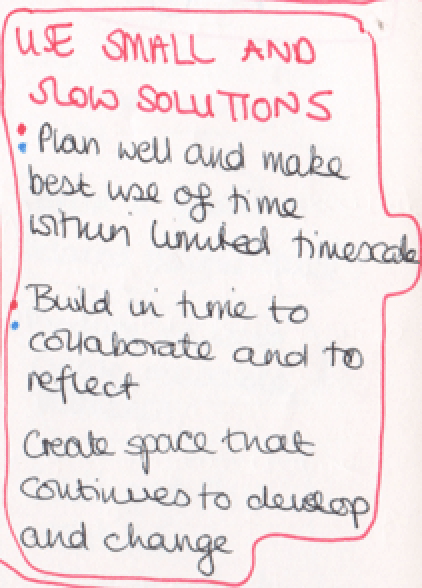 USE SMALL AND
SLOW SOLUTIONS
Plan well and make
best use of time
within limited timescale
Build in time to
collaborate and to
reflect
Create space that
continues to develop
and change